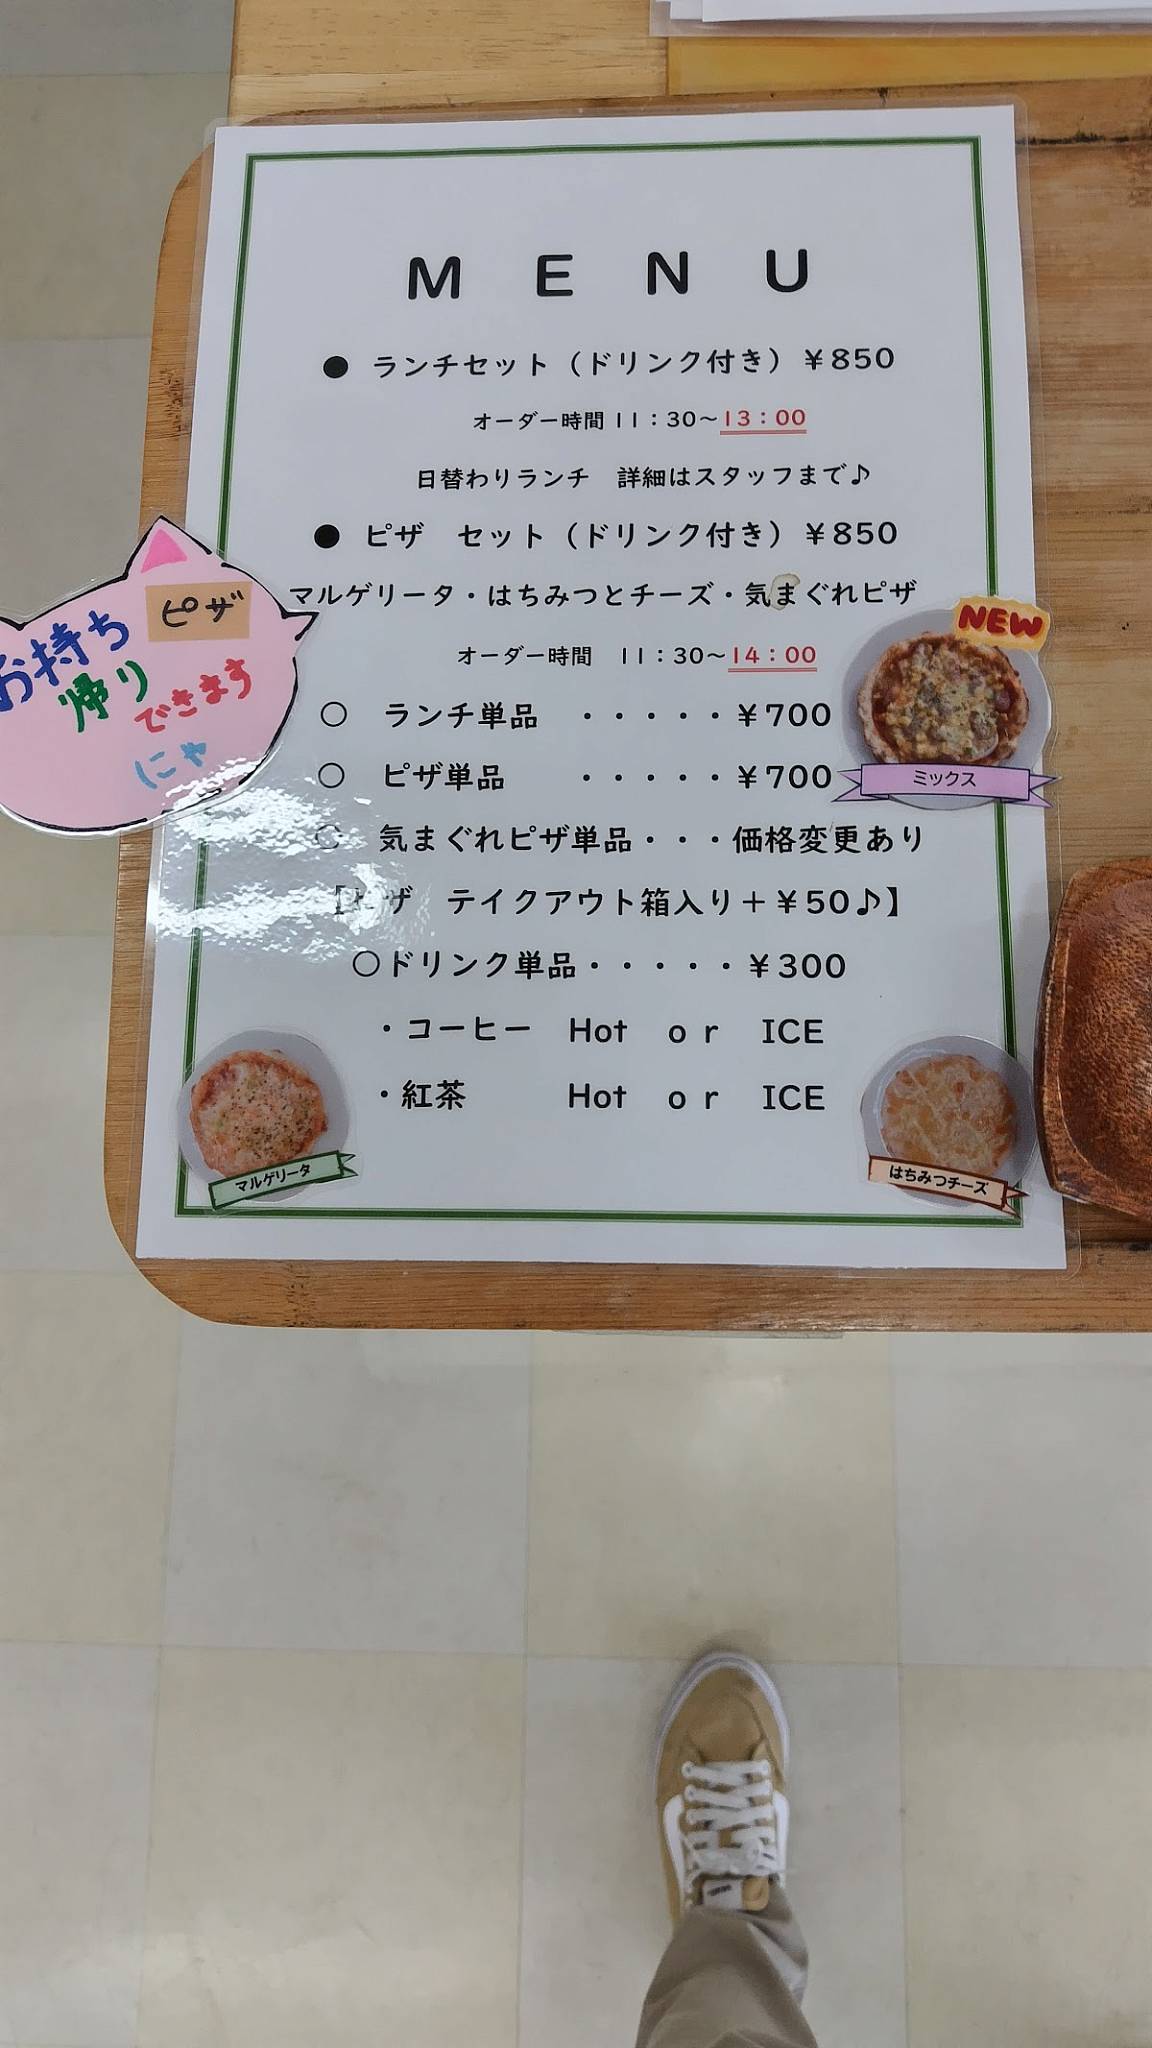 MENU
● ランチセット（ドリンク付き）￥850
オーダー時間 11：30～13：00
日替わりランチ　詳細はスタッフまで♪
● ピザ　セット（ドリンク付き）￥850
マルゲリータ・はちみつとチーズ・気まぐれピザ
オーダー時間　11：30～14：00
○　ランチ単品　・・・・・￥700
○　ピザ単品　　・・・・・￥700
○　気まぐれピザ単品・・・価格変更あり
【ピザ　テイクアウト箱入り＋￥50♪】
○ドリンク単品・・・・・￥300
・コーヒー　Hot　or　ICE
・紅茶　Hot　or　ICE
ピザ
お持ち
帰り
できます
にゃ
NEW
ミックス
マルゲリータ
はちみつチーズ